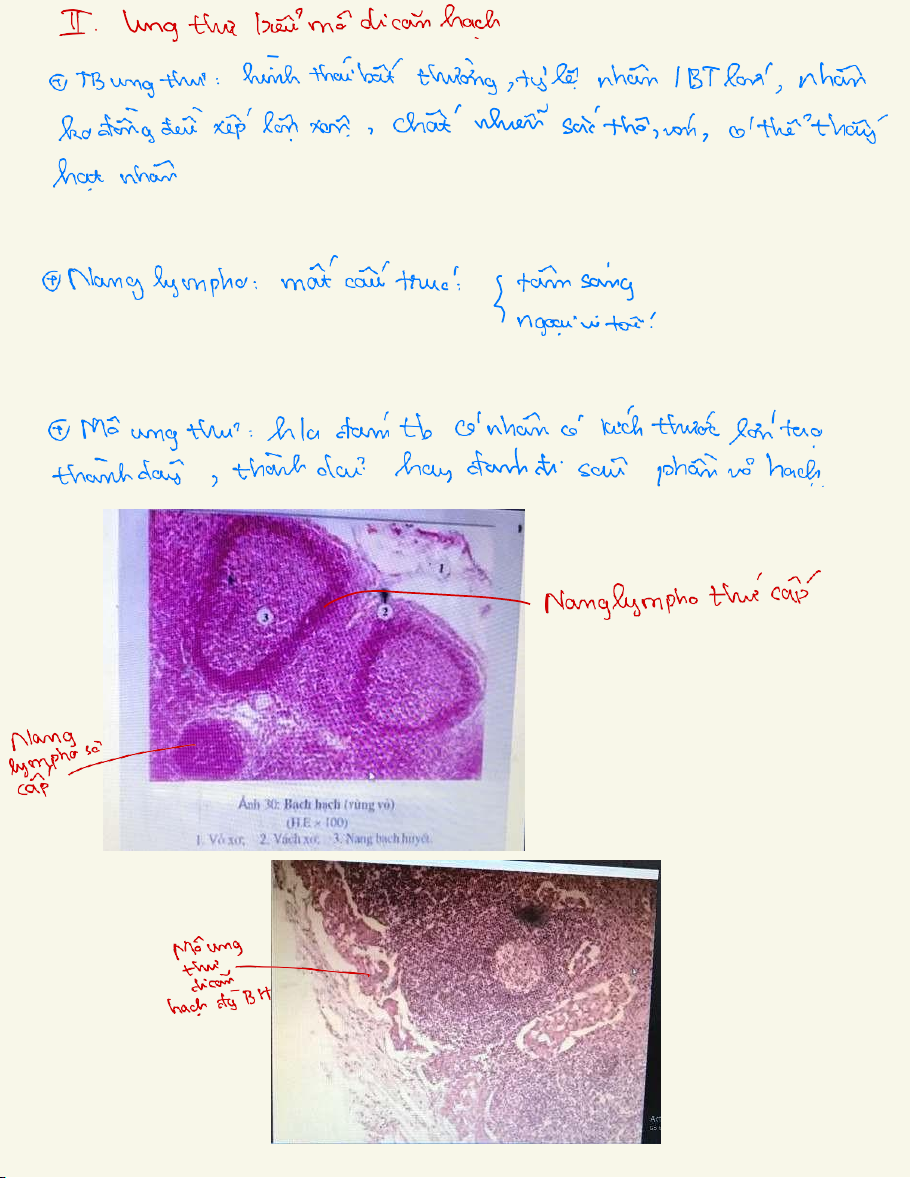 II. Ung thư biểu mô di căn hạch
⊕ TB ung thư: hình thái bất thường, tỷ lệ nhân / BT lớn, nhân
ko đồng đều xếp lộn xộn, chất nhiễm sắc thô, vón, có thể thấy
hạt nhân
⊕ Nang lympho: mất cấu trúc: { tâm sáng
ngoại vi tối
⊕ Mô ung thư: h/a đám tb có nhân có kích thước lớn tạo
thành dây, thành dải hay đám đi sau phần vỏ hạch
1
3
2
Nang lympho thứ cấp
Nang
lympho sơ
cấp
Ảnh 30: Bạch hạch (vùng vỏ)
(H.E × 100)
1. Vỏ xơ; 2. Vách xơ; 3. Nang bạch huyết.
Mô ung
thư
di căn
hạch BH